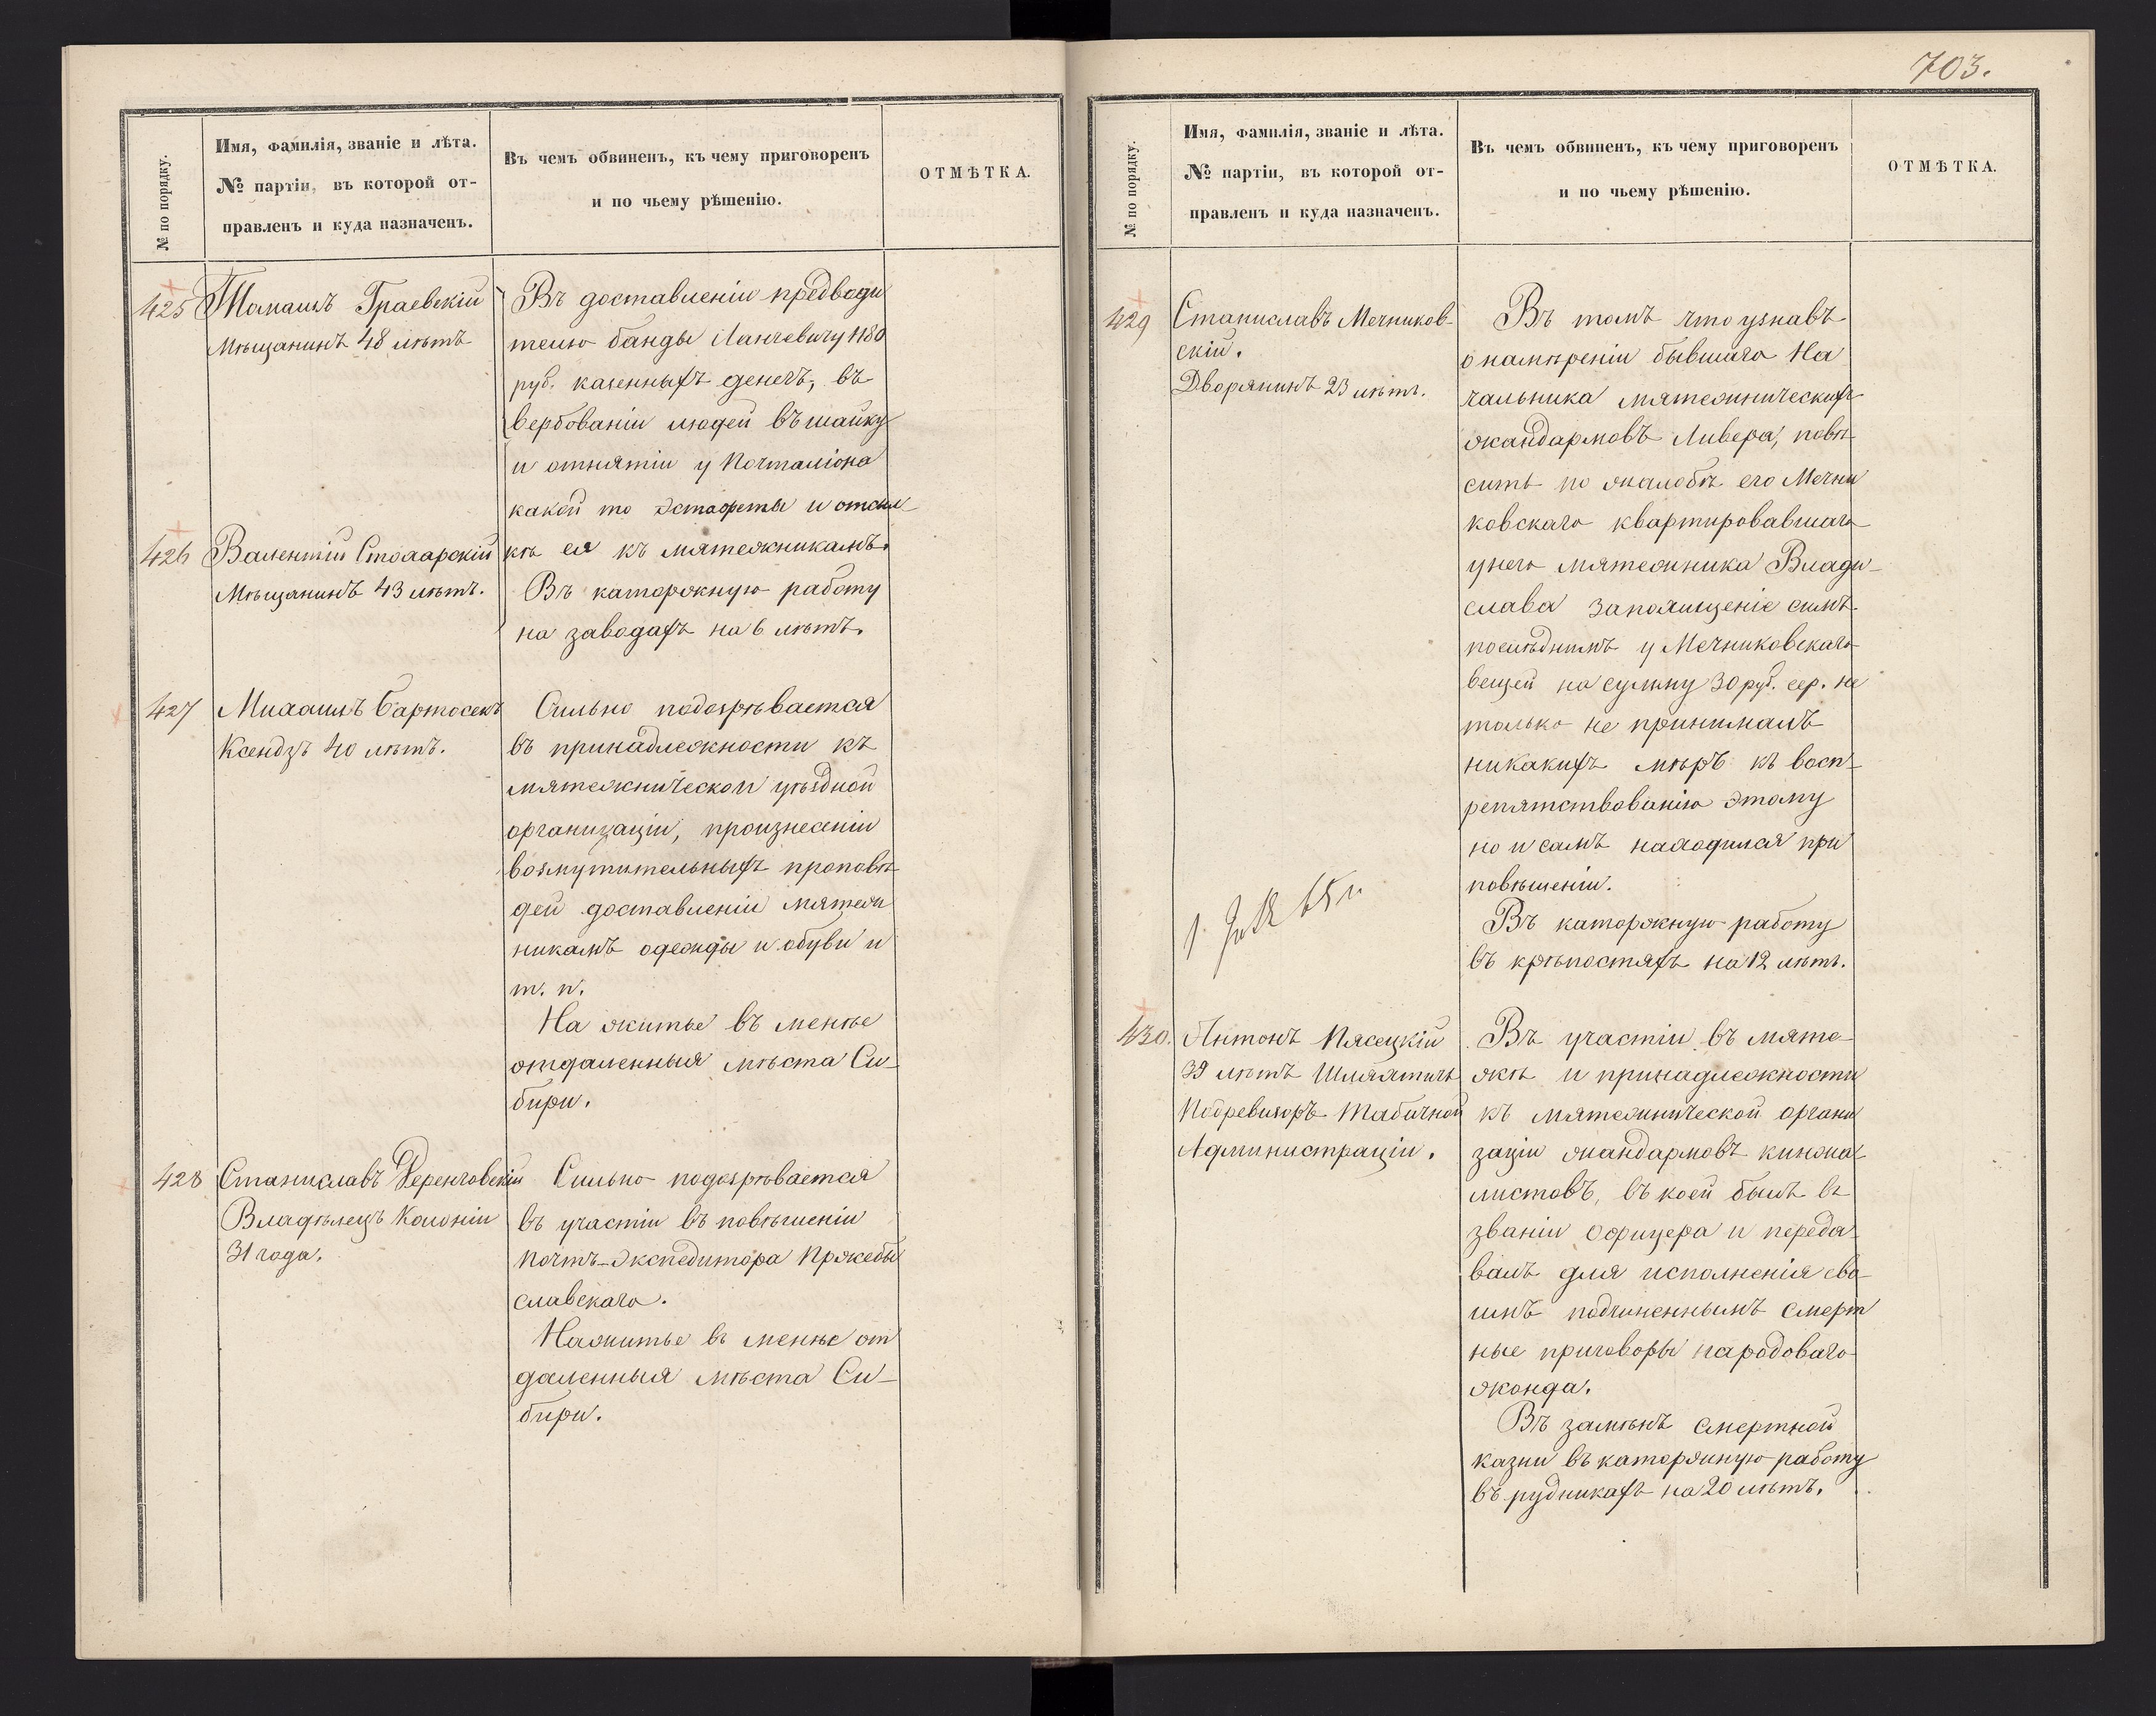 № по порядку.
Имя, фамилія, званіе и лѣта.
№ партіи, въ которой от-
правленъ и куда назначенъ.
Въ чемъ обвиненъ, къ чему приговоренъ
и по чьему рѣшенію.
ОТМѢТКА.
425 Томашъ Граевскій
Мѣщанинъ 48 лѣтъ
Въ доставленіи предводи
телю банды Лангевичу 1180
руб. казенныхъ денегъ, въ
вербованіи людей въ шайку
и отнятіи у Почталіона
какой то эстафеты и отсыл-
кѣ ея къ мятежникамъ.
Въ каторжную работу
на заводахъ на 6 лѣтъ.
426 Валентій Столарскій
Мѣщанинъ 43 лѣтъ.
427 Михаилъ Бартосекъ
Ксендзъ 40 лѣтъ.
Сильно подозрѣвается
въ принадлежности къ
мятежнической уѣздной
организаціи, произнесеніи
возмутительныхъ проповѣ-
дей доставленіи мятеж
никамъ одежды и обуви и
т. п.
На житье въ менѣе
отдаленныя мѣста Си-
бири.
428 Станиславъ Деренговскій
Владѣлецъ Колоніи
31 года.
Сильно подозрѣвается
въ участіи въ повѣшеніи
почтъ-экспедитора Пржебы
славскаго.
На житье въ менѣе от
даленныя мѣста Си-
бири.
703.
№ по порядку.
Имя, фамилія, званіе и лѣта.
№ партіи, въ которой от-
правленъ и куда назначенъ.
Въ чемъ обвиненъ, къ чему приговоренъ
и по чьему рѣшенію.
ОТМѢТКА.
429 Станиславъ Мечников-
скій.
Дворянинъ 23 лѣтъ.
Въ томъ что узнавъ
о намѣреніи бывшаго На
чальника мятежническихъ
жандармовъ Ливера, повѣ-
сить по жалобѣ его Мечни
ковскаго квартировавшаго
у него мятежника Влади-
слава за похищеніе симъ
послѣднимъ у Мечниковскаго
вещей на сумму 30 руб. сер. не
только не принималъ
никакихъ мѣръ къ восп-
репятствованію этому
но и самъ находился при
повѣшеніи.
Въ каторжную работу
въ крѣпостяхъ на 12 лѣтъ.
430. Антонъ Пясецкій
39 лѣтъ Шляхтичъ
Подревизоръ Табачной
Администраціи.
Въ участіи въ мяте-
жѣ и принадлежности
къ мятежнической органи
заціи жандармовъ кинжа-
листовъ, въ коей былъ въ
званіи Офицера и переда-
валъ для исполненія сво-
имъ подчиненнымъ смерт
ные приговоры народоваго
жонда.
Въ замѣнъ смертной
казни въ каторжную работу
въ рудникахъ на 20 лѣтъ.